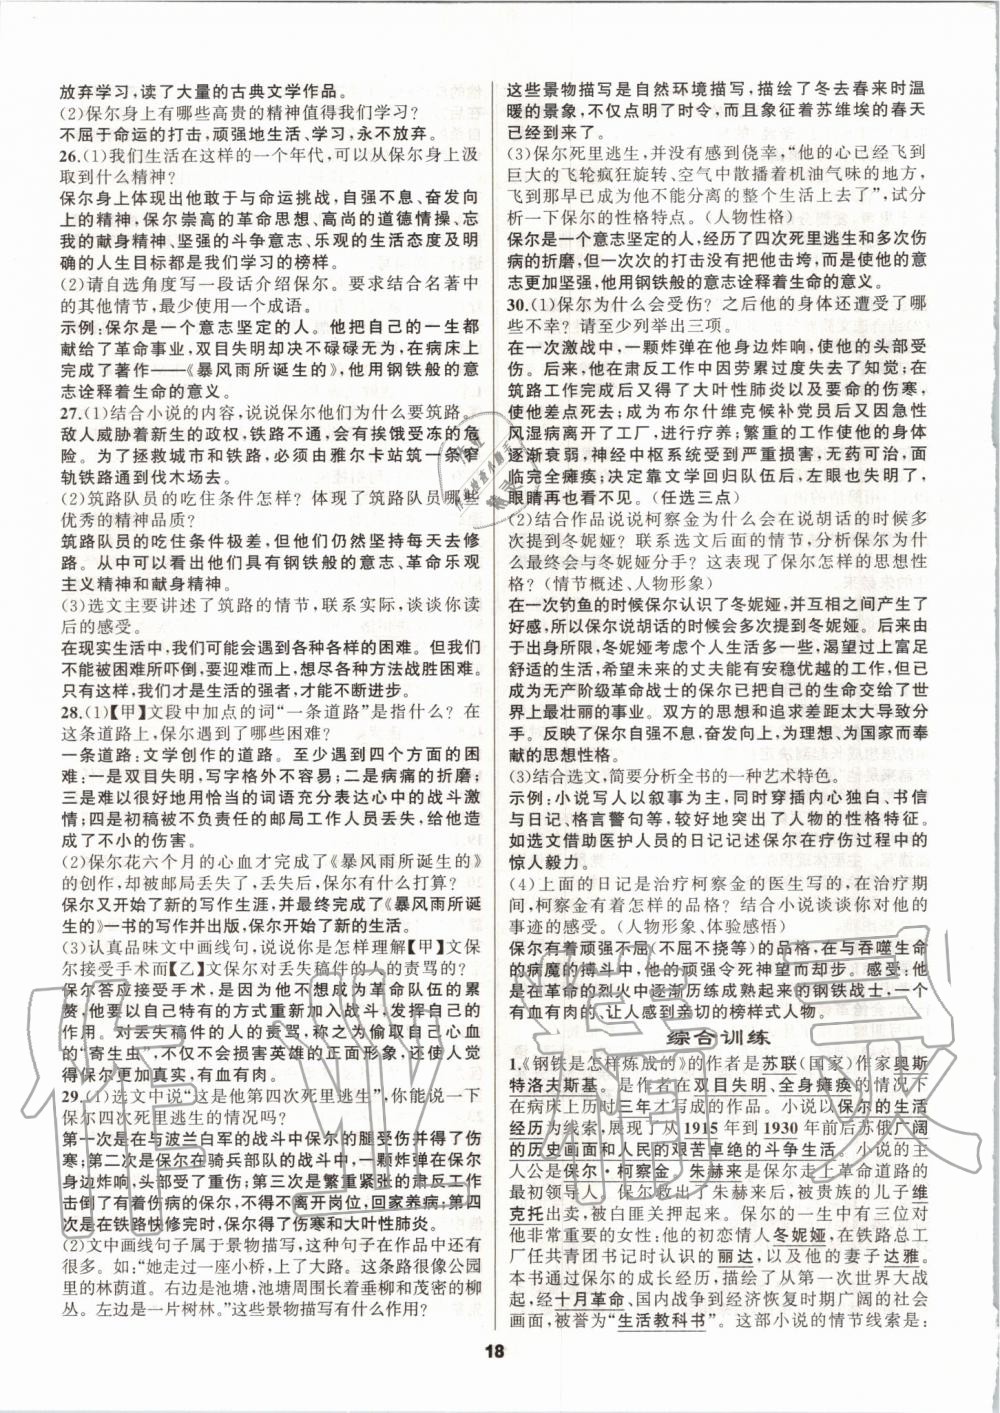 放弃学习,读了大量的古典文学作品。
(2)保尔身上有哪些高贵的精神值得我们学习?
不屈于命运的打击,顽强地生活、学习,永不放弃。
26.(1)我们生活在这样的一个年代,可以从保尔身上汲
取到什么精神?
保尔身上体现出他敢于与命运挑战,自强不息、奋发向
上的精神,保尔崇高的革命思想、高尚的道德情操、忘
我的献身精神、坚强的斗争意志、乐观的生活态度及明
确的人生目标都是我们学习的榜样。
(2)请自选角度写一段话介绍保尔。要求结合名著中
的其他情节,最少使用一个成语。
示例:保尔是一个意志坚定的人。他把自己的一生都
献给了革命事业,双目失明却决不碌碌无为,在病床上
完成了著作——《暴风雨所诞生的》,他用钢铁般的意
志诠释着生命的意义。
27.(1)结合小说的内容,说说保尔他们为什么要筑路。
敌人威胁着新生的政权,铁路不通,会有挨饿受冻的危
险。为了拯救城市和铁路,必须由雅尔卡站筑一条窄
轨铁路通到伐木场去。
(2)筑路队员的吃住条件怎样?体现了筑路队员哪些
优秀的精神品质?
筑路队员的吃住条件极差,但他们仍然坚持每天去修
路。从中可以看出他们具有钢铁般的意志、革命乐观
主义精神和献身精神。
(3)选文主要讲述了筑路的情节,联系实际,谈谈你读
后的感受。
在现实生活中,我们可能会遇到各种各样的困难。但我们
不能被困难所吓倒,要迎难而上,想尽各种方法战胜困难。
只有这样,我们才是生活的强者,才能不断进步。
28.(1)【甲】文段中加点的词“一条道路”是指什么?在
这条道路上,保尔遇到了哪些困难?
一条道路:文学创作的道路。至少遇到四个方面的困
难:一是双目失明,写字格外不容易;二是病痛的折磨;
三是难以很好地用恰当的词语充分表达心中的战斗激
情;四是初稿被不负责任的邮局工作人员丢失,给他造
成了不小的伤害。
(2)保尔花六个月的心血才完成了《暴风雨所诞生的》
的创作,却被邮局丢失了,丢失后,保尔有什么打算?
保尔又开始了新的写作生涯,并最终完成了《暴风雨所诞
生的》一书的写作并出版,保尔开始了新的生活。
(3)认真品味文中画线句,说说你是怎样理解【甲】文保
尔接受手术而【乙】文保尔对丢失稿件的人的责骂的?
保尔答应接受手术,是因为他不想成为革命队伍的累
赘,他要以自己特有的方式重新加入战斗,发挥自己的
作用。对丢失稿件的人的责骂,称之为偷食自己心血的
“寄生虫”,不会损害英雄的正面形象,还使我们觉
得保尔更加真实,有血有肉。
29.(1)选文中说“这是他第四次死里逃生”,你能说一下
保尔四次死里逃生的情况吗?
第一次是在与波兰白军的战斗中保尔的腿受伤并得了伤
寒;第二次是保尔在骑兵部队的战斗中,一颗炸弹在他
身边炸响,头部受了重伤;第三次是繁重紧张的肃反工
作击倒了有着伤病的保尔,不得不离开岗位,回家养病;第四
次是在铁路快修完时,保尔得了伤寒和大叶性肺炎。
(2)文中画线句子属于景物描写,这种句子在作品中还
有很多。如:“她走过一座小桥,上了大路。这条路像公园
里的林荫道。右边是池塘,池塘周围长着垂柳和茂密的柳
丛。左边是一片树林。”这些景物描写有什么作用?
这些景物描写是自然环境描写,描绘了冬去春来时温
暖的景象,不仅点明了时令,而且象征着苏维埃的春天
已经到来了。
(3)保尔死里逃生,并没有感到侥幸,“他的心已经飞到
巨大的飞轮疯狂旋转、空气中散播着机油气味的地方,
飞到那早已成为他不能分离的整个生活上去了”,试分
析一下保尔的性格特点。(人物性格)
保尔是一个意志坚定的人,经历了四次死里逃生和多次伤
病的折磨,但一次次的打击没有把他击垮,而是使他的意志
更加坚强,他用钢铁般的意志诠释着生命的意义。
30.(1)保尔为什么会受伤?之后他的身体还遭受了哪
些不幸?请至少列举出三项。
在一次激战中,一颗炸弹在他身边炸响,使他的头部受
伤。后来,他在肃反工作中因劳累过度失去了知觉;在
筑路工作完成后又得了大叶性肺炎以及要命的伤寒,
使他差点死去;成为布尔什维克候补党员后又因得了
风湿病离开了工厂,进行疗养;繁重的工作使他的身体
逐渐衰弱,神经中枢系统受到严重损害,无药可治,面
临完全瘫痪;决定靠文学回归队伍后,左眼也失明了,
眼睛再也看不见。(任选三点)
(2)结合作品说说柯察金为什么会在说胡话的时候多
次提到冬妮娅?联系选文后面的情节,分析保尔为什
么最终会与冬妮娅分手?这表现了保尔怎样的思想性
格?(情节概述、人物形象)
在一次钓鱼的时候保尔认识了冬妮娅,并互相之间产生了
好感,所以保尔说胡话的时候会多次提到冬妮娅。后来由
于出身所限,冬妮娅考虑个人生活多一些,渴望过上富足
舒适的生活,希望未来的丈夫能有安稳优越的工作,但已
成为无产阶级革命战士的保尔已把自己的生命交给了世
界上最壮丽的事业。双方的思想和追求差距太大导致分
手。反映了保尔自强不息,奋发向上,为理想、为国家而奉
献的思想性格。
(3)结合选文,简要分析全书的一种艺术特色。
示例:小说写人以叙事为主,同时穿插内心独白、书信
与日记、格言警句等,较好地突出了人物的性格特征。
如选文借助医护人员的日记记述保尔在疗伤过程中的
惊人毅力。
(4)上面的日记是治疗柯察金的医生写的,在治疗期
间,柯察金有着怎样的品格?结合小说谈谈你对他的
事迹的感受。(人物形象、体验感悟)
保尔有着顽强不屈(不屈不挠等)的品格,在与吞噬生命
的病魔的搏斗中,他的顽强令死神望而却步。感受:他
是在革命的烈火中逐渐历练成熟起来的钢铁战士,一个
有血有肉的、让人感到亲切的榜样式人物。
综合训练
1.《钢铁是怎样炼成的》的作者是苏联(国家)作家奥斯
特洛夫斯基。是作者在双目失明、全身瘫痪的情况下
在病床上历时三年才写成的作品。小说以保尔的生活
经历为线索,展现了从1915年到1930年前后苏俄广阔
的历史画面和人民的艰苦卓绝的斗争生活。小说的主
人公是保尔·柯察金,朱赫来是保尔走上革命道路的最
初领导人。保尔救出了朱赫来后,被贵族的儿子维
克托出卖,被白匪关押起来。保尔的一生中有三位对
他非常重要的女性:他的初恋情人冬妮娅,在铁路总工
厂任共青团书记时认识的丽达,以及他的妻子达雅。
本书通过保尔的成长经历,描绘了从第一次世界大战
起,经十月革命、国内战争到经济恢复时期广阔的社会
画面,被誉为“生活教科书”。这部小说的情节线索是:
18